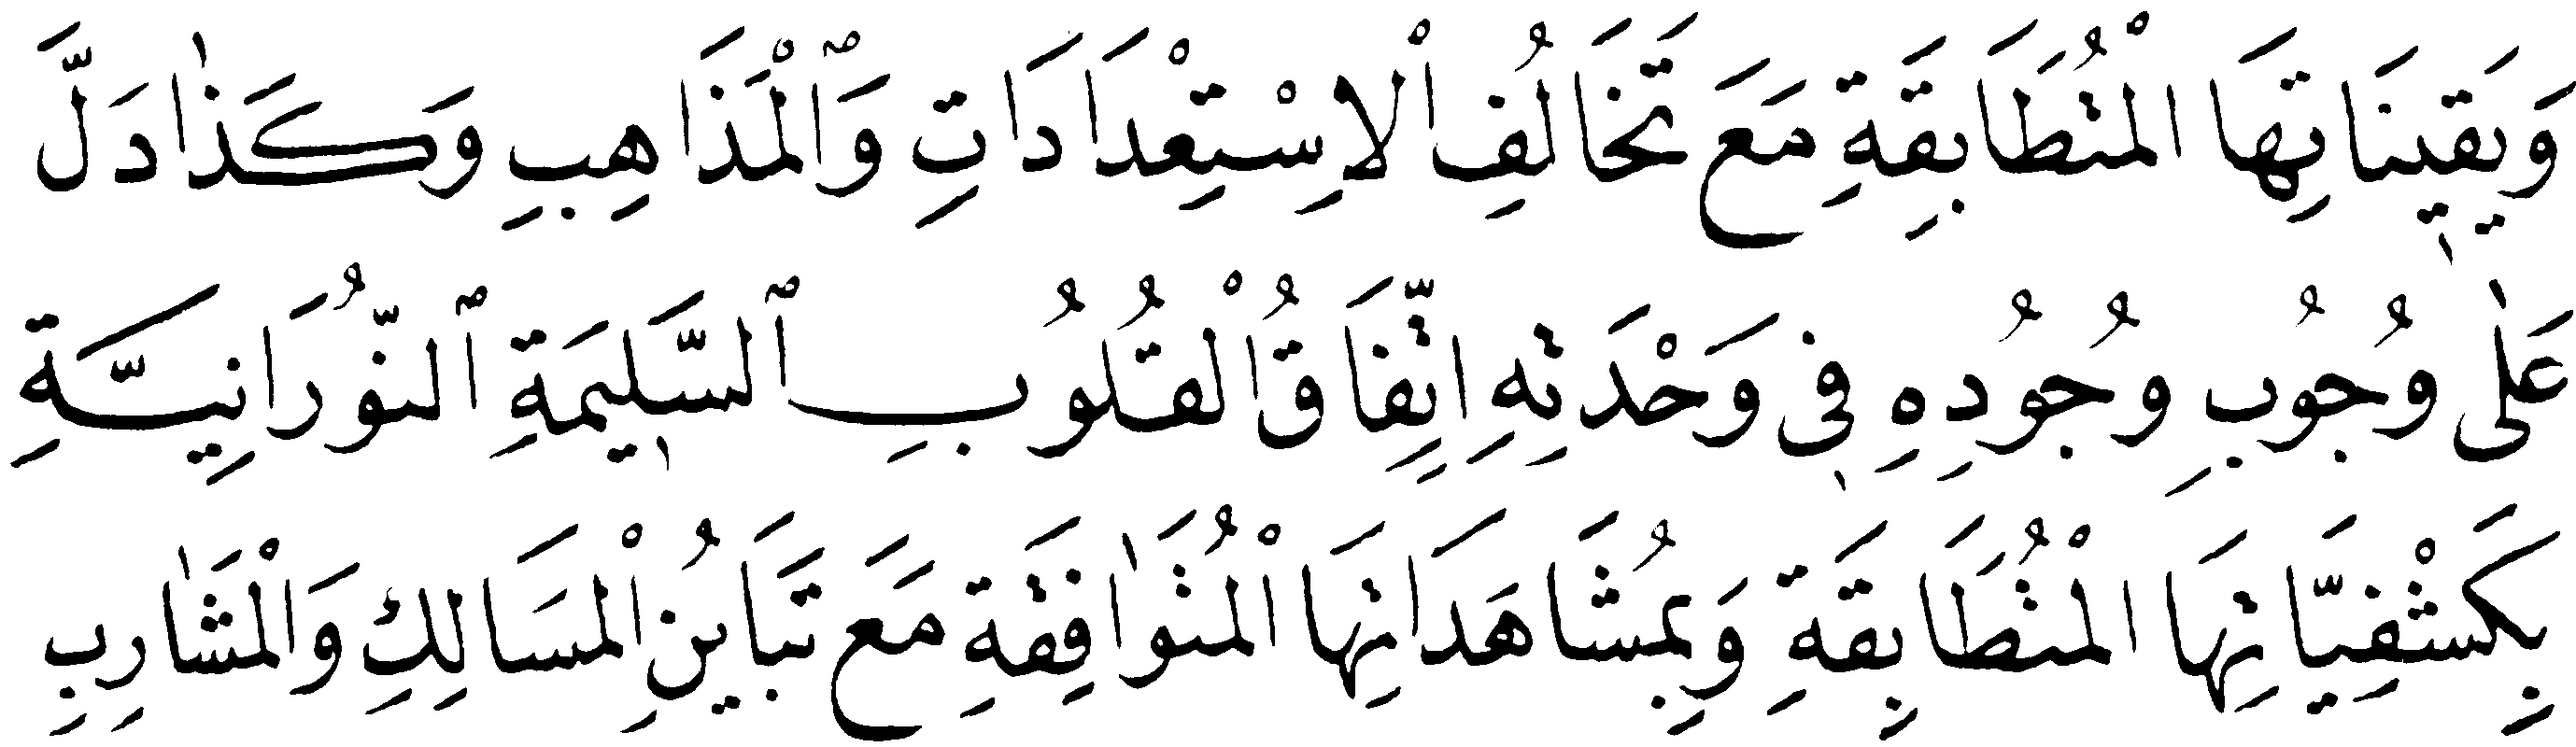 وَيَقٖينَاتِهَا الْمُتَطَابِقَةِ مَعَ تَخَالُفِ اْلاِسْتِعْدَادَاتِ وَٱلْمَذَاهِبِ وَكَذٰا دَلَّ
عَلٰى وُجُوبِ وُجُودِهِ فٖى وَحْدَتِهِ اِتِّفَاقُ الْقُلُوبِ ٱلسَّلٖيمَةِ ٱلنُّورَانِيَّةِ
بِكَشْفِيَّاتِهَا الْمُتَطَابِقَةِ وَبِمُشَاهَدَاتِهَا الْمُتَوٰافِقَةِ مَعَ تَبَايُنِ الْمَسَالِكِ وَالْمَشٰارِبِ